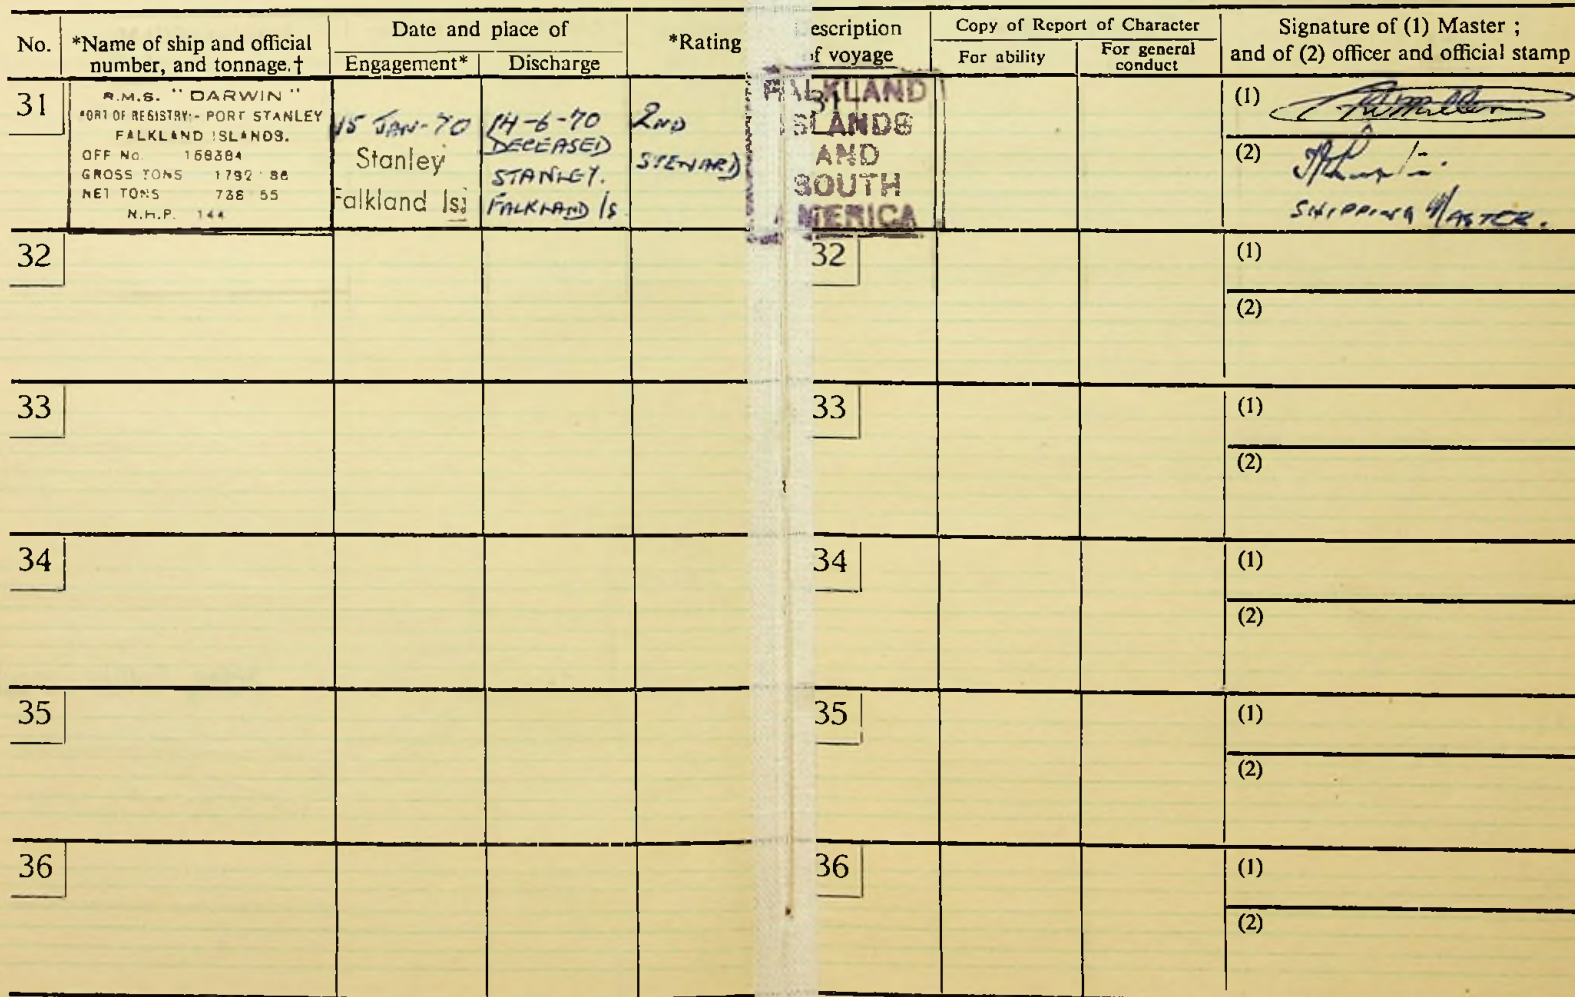 No.
*Name of ship and official
number, and tonnage.†
Date and place of
Engagement*
Discharge
*Rating
escription
of voyage
Copy of Report of Character
For ability
For general
conduct
Signature of (1) Master ;
and of (2) officer and official stamp
31
R.M.S. "DARWIN"
PORT OF REGISTRY:- PORT STANLEY
FALKLAND ISLANDS.
OFF No. 158384
GROSS TONS 1792 · 86
NET TONS 738 · 55
N.H.P. 144
15 JAN-70
Stanley
Falkland Is
14-6-70
DECEASED
STANLEY.
FALKLAND Is
2ND
STEWARD
31
FALKLAND
ISLANDS
AND
SOUTH
AMERICA
(1)
(2)
SHIPPING MASTER.
32
32
(1)
(2)
33
33
(1)
(2)
34
34
(1)
(2)
35
35
(1)
(2)
36
36
(1)
(2)